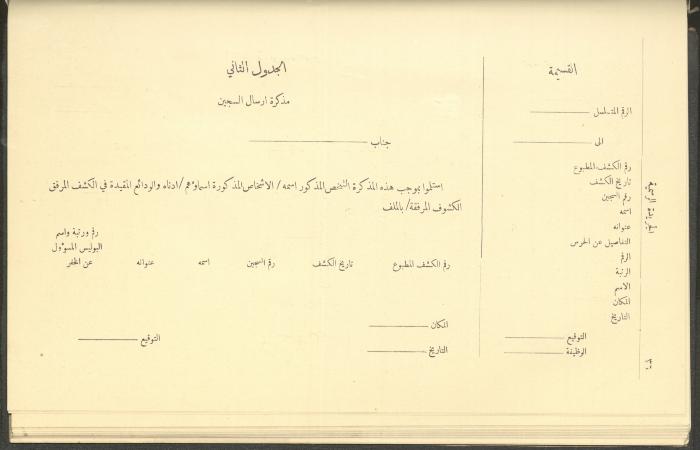 القسيمة
الرقم المتسلسل
الى
رقم الكشف المطبوع
تاريخ الكشف
رقم السجين
اسمه
عنوانه
التفاصيل عن الحرس
الرقم
الرتبة
الاسم
المكان
التاريخ
التوقيع
الوظيفة
الجدول الثاني
مذكرة ارسال السجين
جناب
استلموا بموجب هذه المذكرة الشخص المذكور اسمه/ الاشخاص المذكورة اسماؤهم/ ادناه والودائع المقيدة في الكشف المرفق
الكشوف المرفقة/ بالملف
رقم الكشف المطبوع تاريخ الكشف رقم السجين اسمه عنوانه رقم ورتبة واسم
البوليس المسؤول
عن الخفر
المكان
التاريخ
التوقيع
الجريدة الرسمية